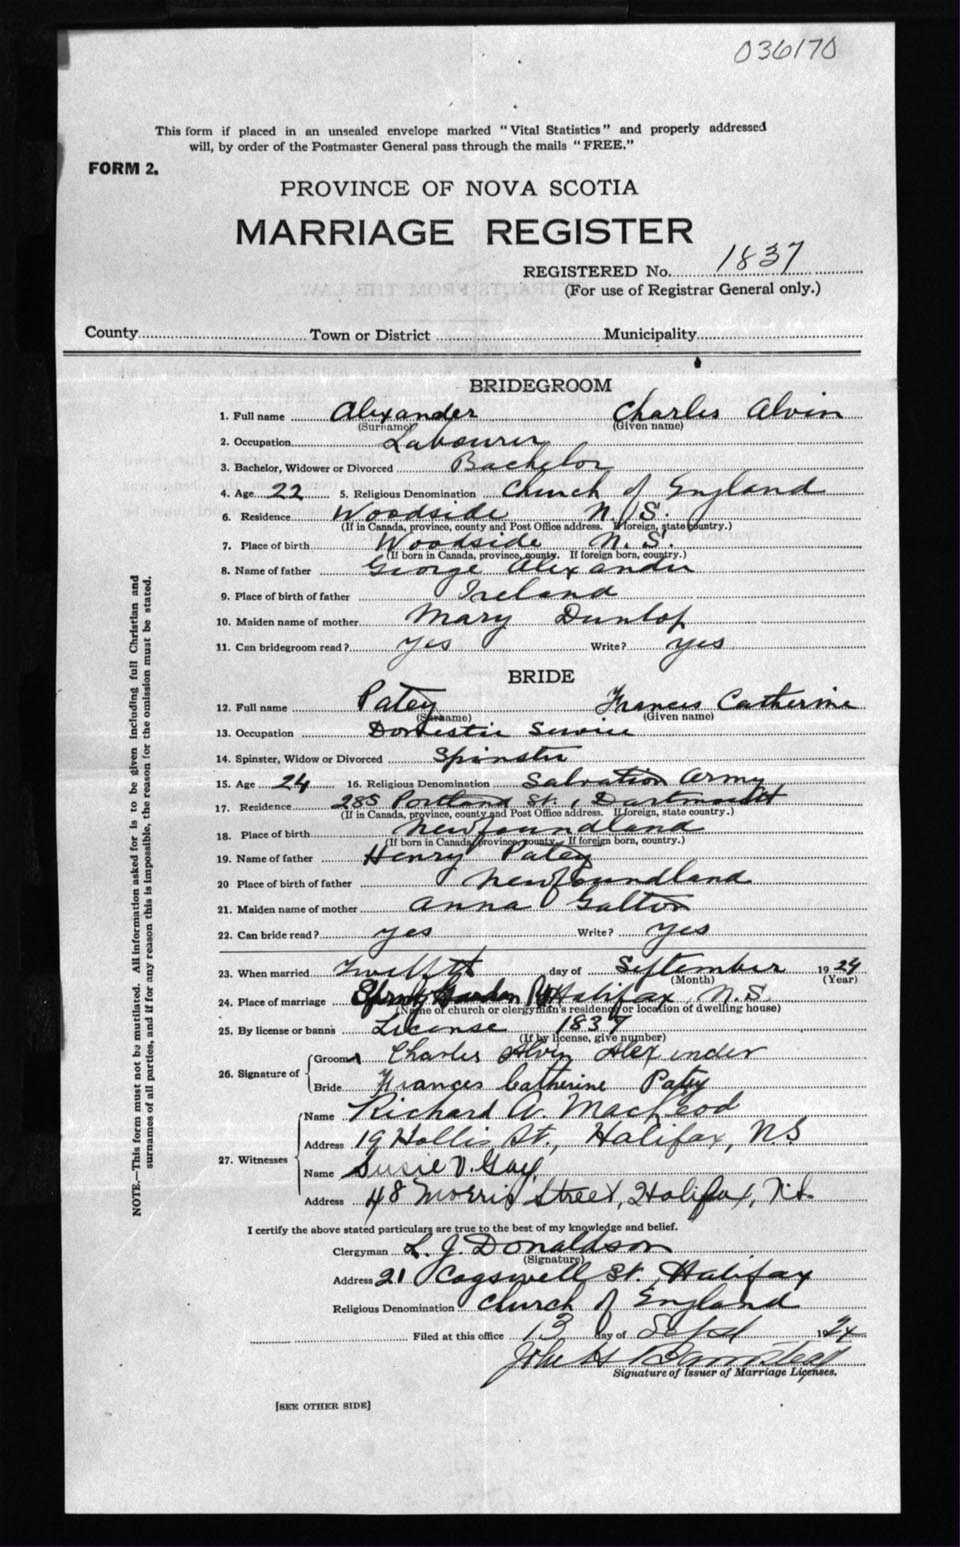 036170
This form if placed in an unsealed envelope marked "Vital Statistics" and properly addressed
will, by order of the Postmaster General pass through the mails "FREE."
FORM 2.
PROVINCE OF NOVA SCOTIA
MARRIAGE REGISTER
REGISTERED No. 1837
(For use of Registrar General only.)
County Town or District Municipality
BRIDEGROOM
1. Full name Alexander Charles Alvin
(Surname) (Given name)
2. Occupation Labourer
3. Bachelor, Widower or Divorced Bachelor
4. Age 22 5. Religious Denomination Church of England
6. Residence Woodside N.S.
(If in Canada, province, county and Post Office address. If foreign, state country.)
7. Place of birth Woodside N.S.
(If born in Canada, province, county. If foreign born, country.)
8. Name of father George Alexander
9. Place of birth of father Ireland
10. Maiden name of mother Mary Dunlop
11. Can bridegroom read? yes Write? yes
BRIDE
12. Full name Patey Frances Catherine
(Surname) (Given name)
13. Occupation Domestic Service
14. Spinster, Widow or Divorced Spinster
15. Age 24 16. Religious Denomination Salvation Army
17. Residence 285 Portland St., Dartmouth
(If in Canada, province, county and Post Office address. If foreign, state country.)
18. Place of birth Newfoundland
(If born in Canada, province, county. If foreign born, country.)
19. Name of father Henry Patey
20 Place of birth of father Newfoundland
21. Maiden name of mother Anna Galton
22. Can bride read? yes Write? yes
23. When married Twelfth day of September 1924
(Month) (Year)
24. Place of marriage Spring Garden Rd Halifax N.S.
(Name of church or clergyman's residence or location of dwelling house)
25. By license or banns License 1837
(If by license, give number)
26. Signature of
Groom Charles Alvin Alexander
Bride Frances Catherine Patey
27. Witnesses
Name Richard A. MacLeod
Address 19 Hollis St., Halifax, NS
Name Susie V. Gay
Address 48 Morris Street, Halifax, N.S.
I certify the above stated particulars are true to the best of my knowledge and belief.
Clergyman L. J. Donaldson
(Signature)
Address 21 Cogswell St. Halifax
Religious Denomination Church of England
Filed at this office 13 day of Sept 1924
John H
Signature of Issuer of Marriage Licenses.
[SEE OTHER SIDE]
NOTE.—This form must not be mutilated. All information asked for is to be given including full Christian and
surnames of all parties, and if for any reason this is impossible, the reason for the omission must be stated.